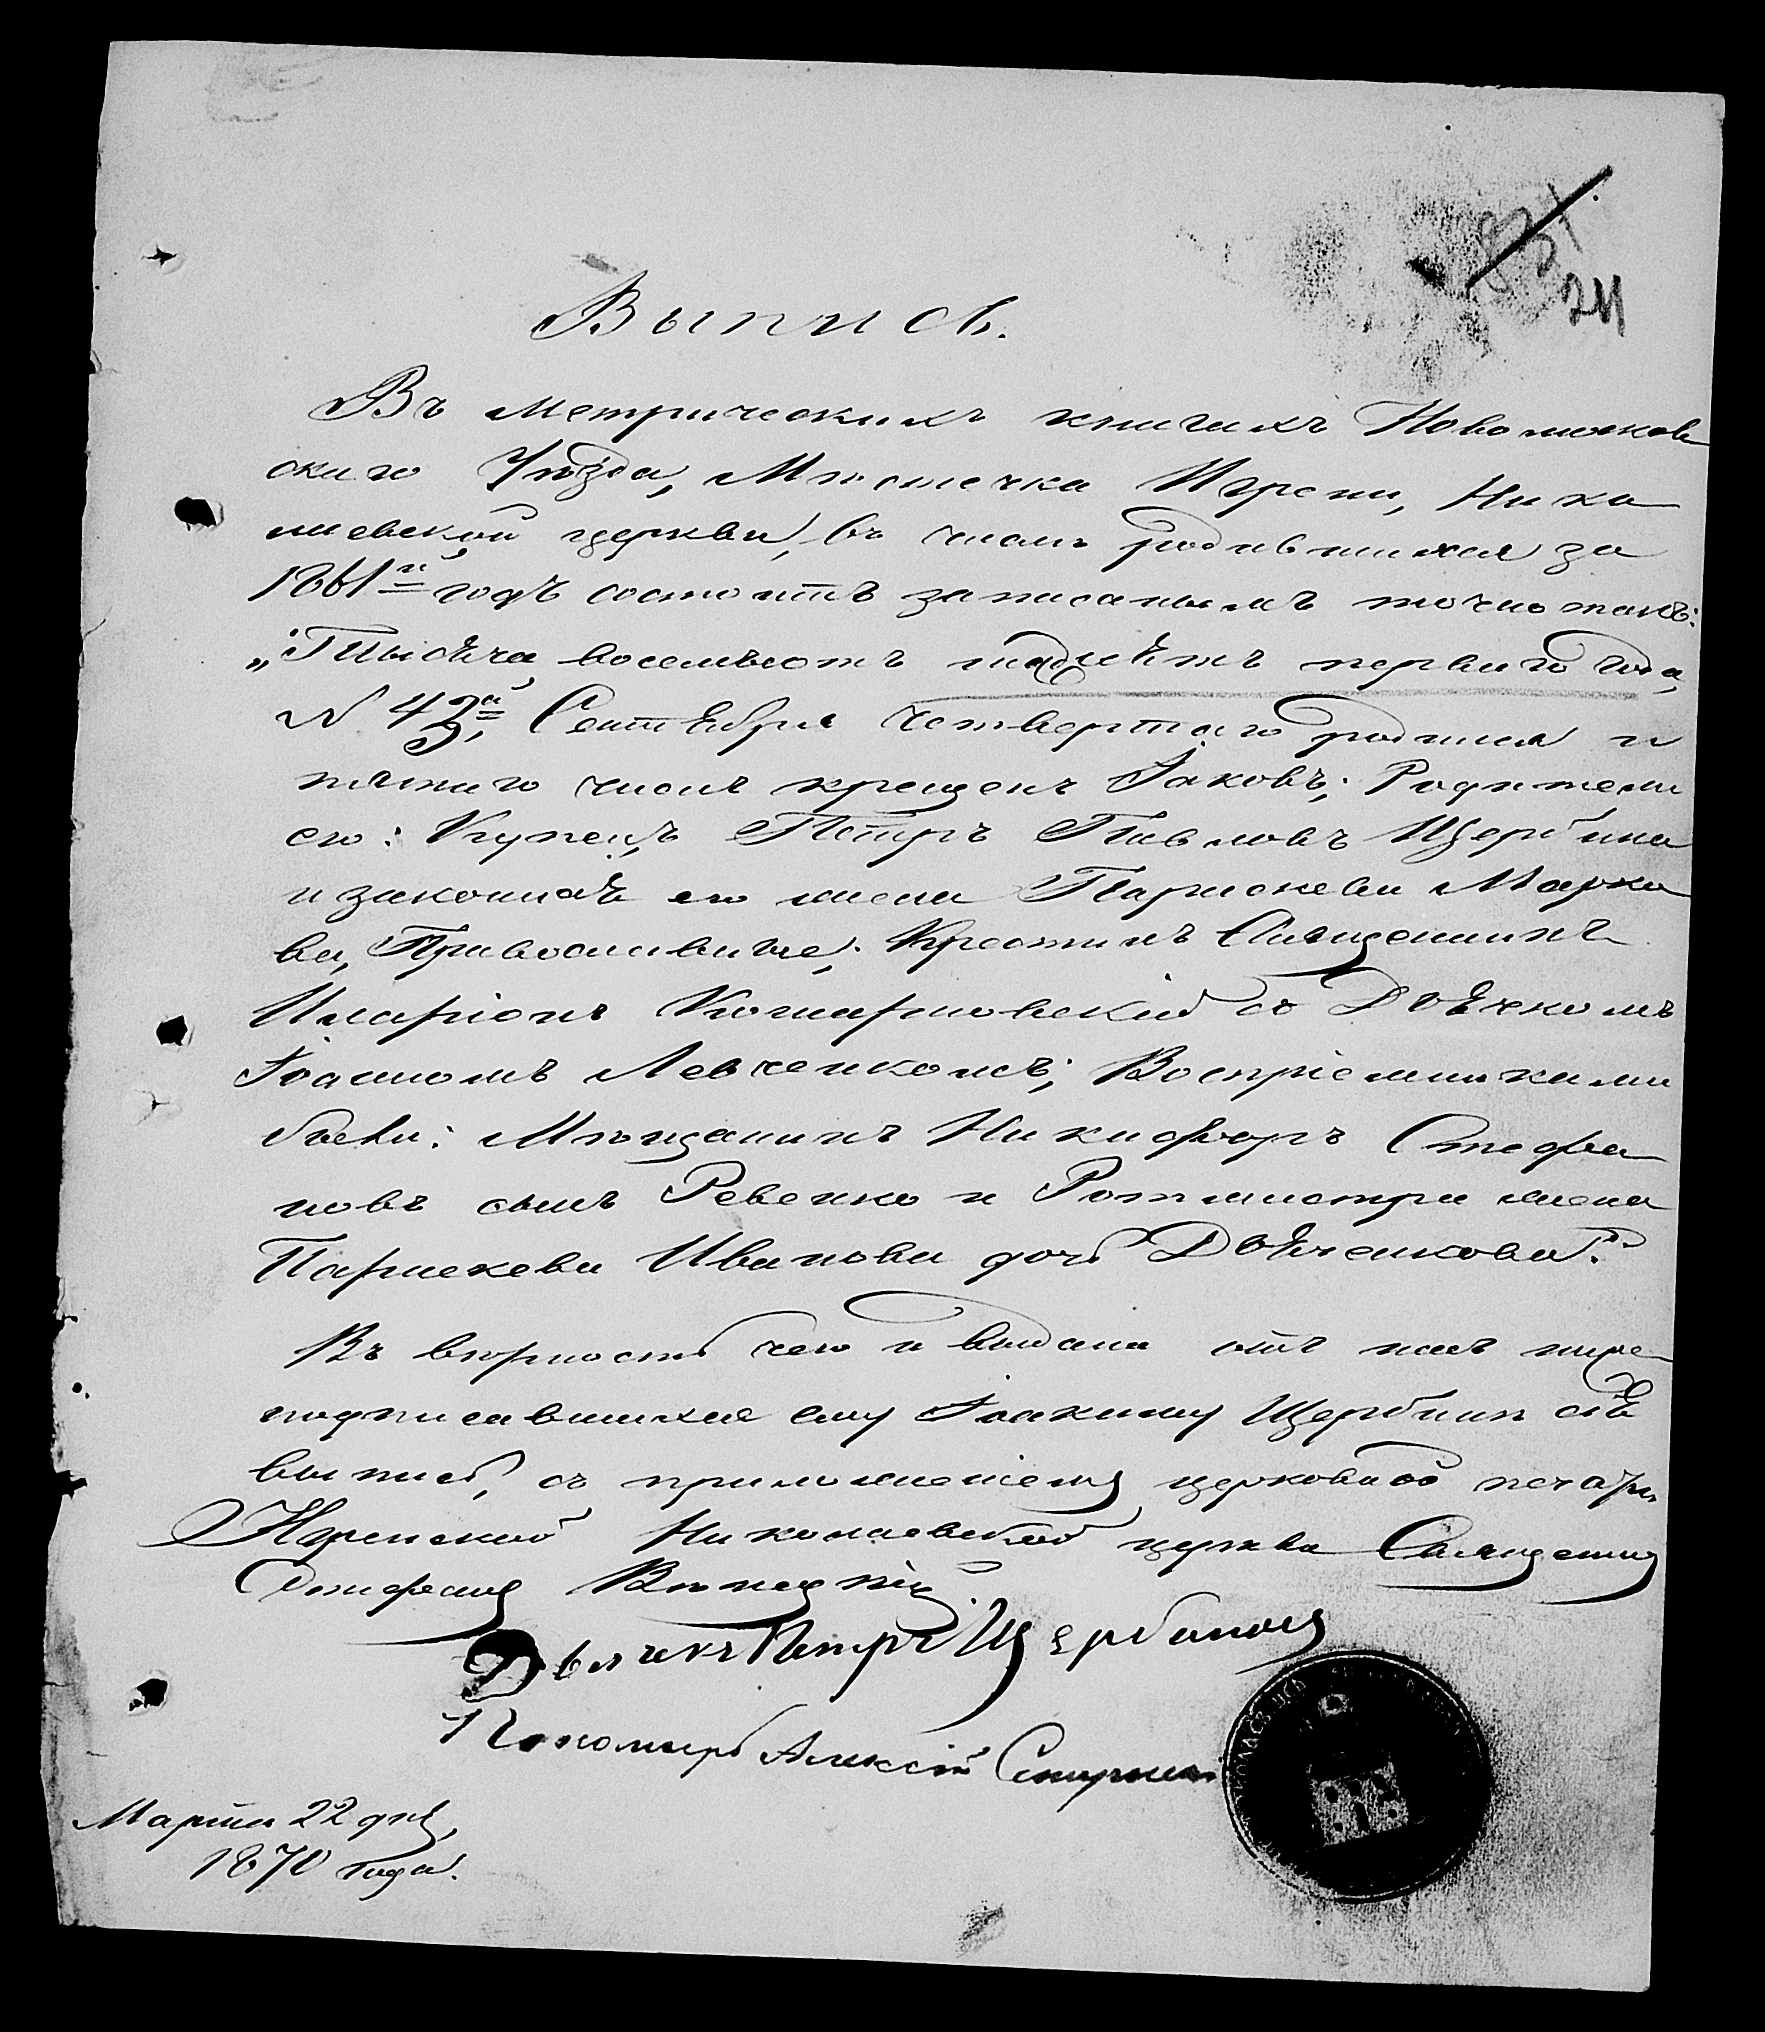 241
Выпись.
Въ метрическихъ книгахъ Новомосков
скаго Уѣзда, Мѣстечка Игрени, Нико
лаевской церкви, въ числѣ родившихся за
1861й годъ состоитъ записаннымъ точно такъ:
„Тысяча восемьсотъ шестьдесятъ перваго года,
№ 42й, Сентября четвертаго родился и
пятаго числа крещенъ Іаковъ; Родители
его: Купецъ Петръ Павловъ Щербина
и законная его жена Параскева Марко
ва, Православные; Крестилъ Священникъ
Иларіонъ съ Дьячкомъ
Іоанномъ Левченкомъ; Воспріемниками
были: Мѣщанинъ Никифоръ Стефа
новъ сынъ Ревенко и Ротмистра жена
Параскева Иванова дочь Дьяченкова."
Въ вѣрности чего и выдана отъ насъ ниже
подписавшихся ему Іоакиму Щербинѣ сія
выпись, съ приложеніемъ церковной печати.
Игренской Николаевской церкви Священникъ
Дьячекъ Петръ Щербановъ
Пономарь Алексій
Марта 22 дня,
1870 года.